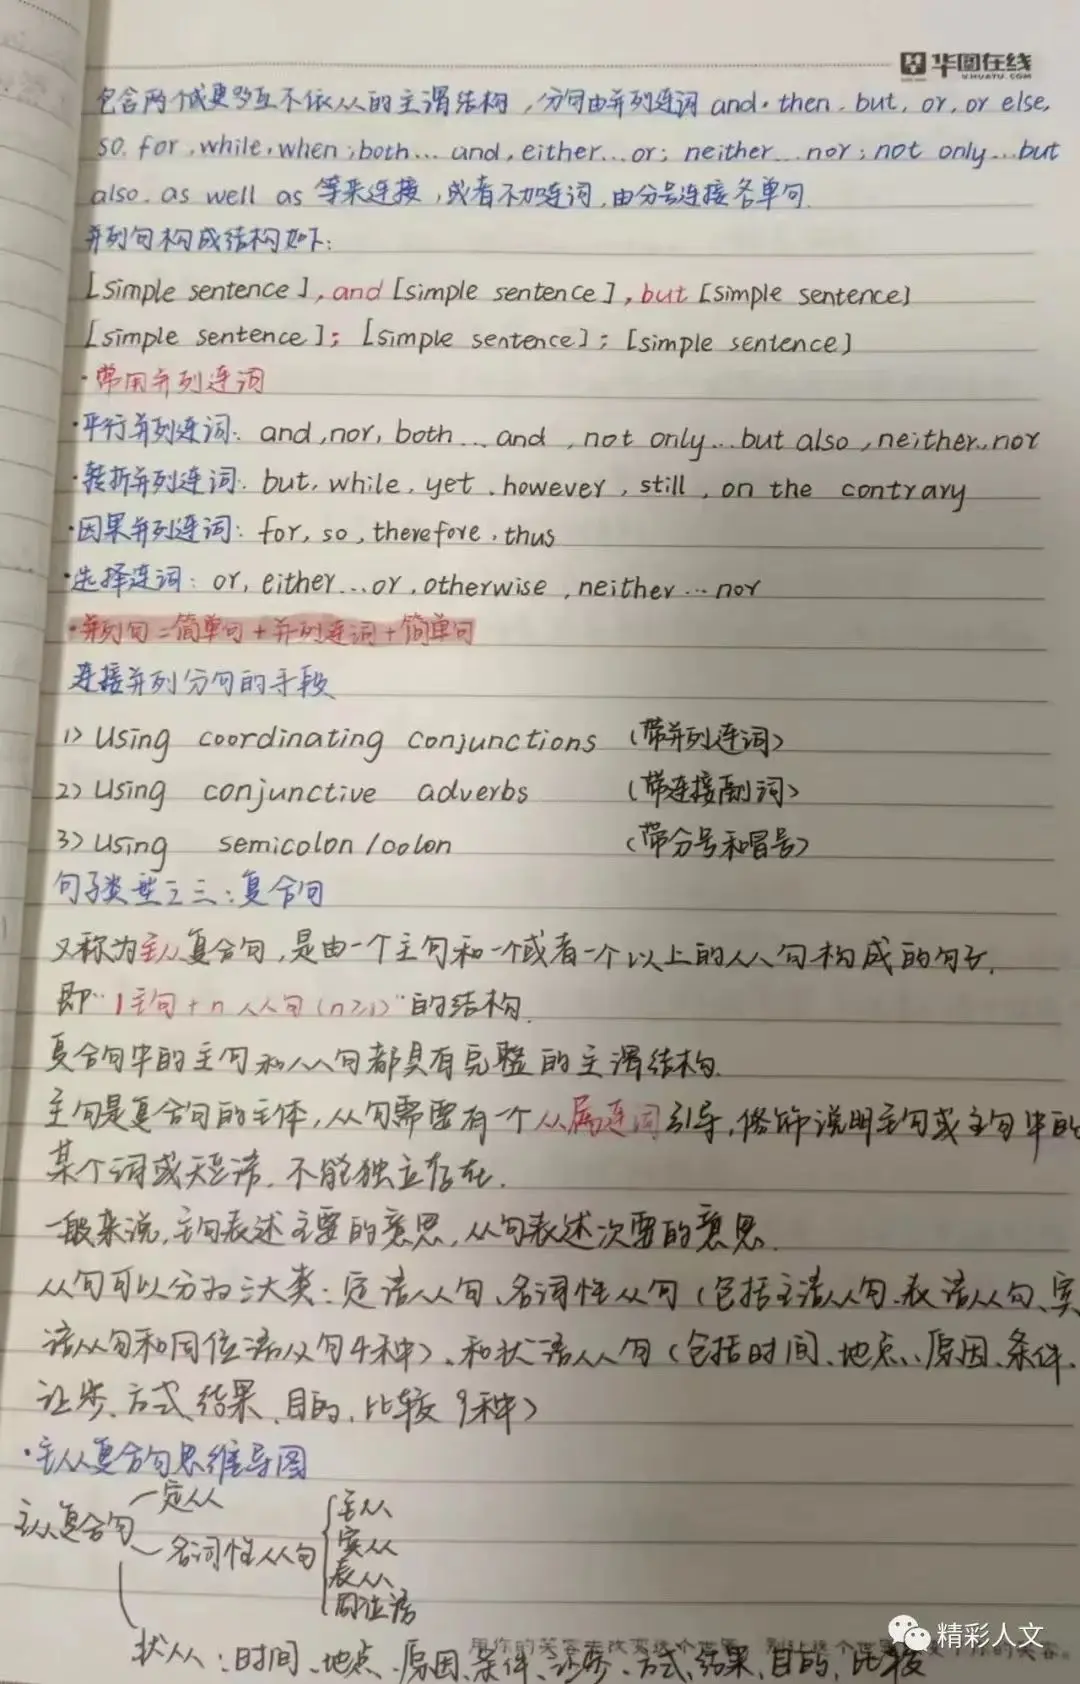 华图在线
V.HUATU.COM
包含两个或更多互不依从的主谓结构,分句由并列连词 and, then, but, or, or else,
so, for, while, when; both... and, either... or; neither... nor; not only...but
also, as well as 等来连接,或者不加连词,由分号连接各单句.
并列句构成结构如下:
[simple sentence], and [simple sentence], but [simple sentence]
[simple sentence]; [simple sentence]; [simple sentence]
·常用并列连词
·平行并列连词: and, nor, both... and, not only...but also, neither...nor
·转折并列连词: but, while, yet, however, still, on the contrary
·因果并列连词: for, so, therefore, thus
·选择连词: or, either...or, otherwise, neither...nor
·并列句=简单句+并列连词+简单句
连接并列分句的手段
1) Using coordinating conjunctions (带并列连词)
2) Using conjunctive adverbs (带连接副词)
3) Using semicolon/oolon (带分号和冒号)
句子类型之三:复合句
又称为主从复合句,是由一个主句和一个或者一个以上的从句构成的句子.
即"1主句+n从句(n≥1)"的结构.
复合句中的主句和从句都具有完整的主谓结构.
主句是复合句的主体,从句需要有一个从属连词引导,修饰说明主句或主句中的
某个词或短语,不能独立存在.
一般来说,主句表述主要的意思,从句表述次要的意思.
从句可以分为三大类:定语从句、名词性从句(包括主语从句、表语从句、宾
语从句和同位语从句4种)、和状语从句(包括时间、地点、原因、条件、
让步、方式、结果、目的、比较9种)
·主从复合句思维导图
主从复合句
定从
名词性从句
主从
宾从
表从
同位语
状从:时间、地点、原因、条件、让步、方式、结果、目的、比较
精彩人文